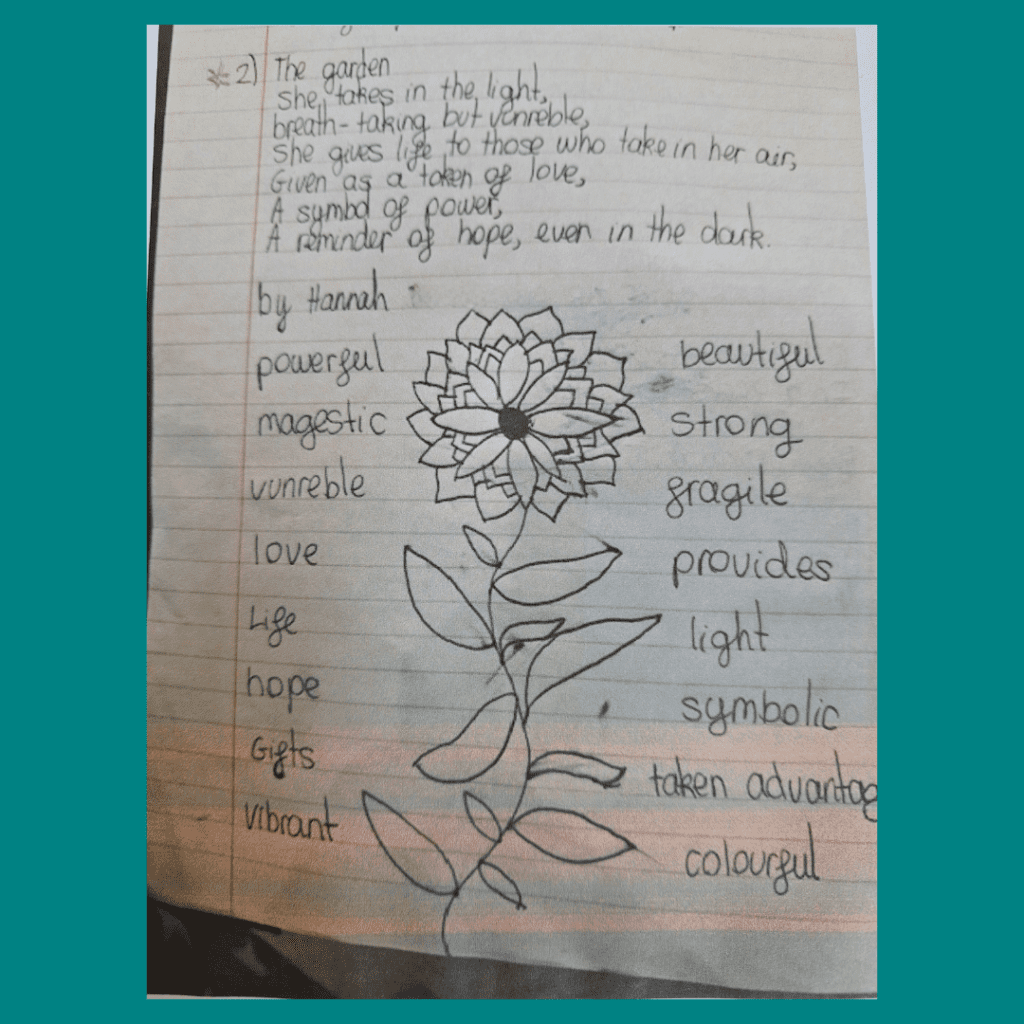 2) The garden
She takes in the light,
breath-taking but venreble,
She gives life to those who take in her air,
Given as a token of love,
A symbol of power,
A reminder of hope, even in the dark.
by Hannah
powerful
magestic
vunreble
love
Life
hope
Gifts
vibrant
beautiful
strong
fragile
provides
light
symbolic
taken advantag
colourful